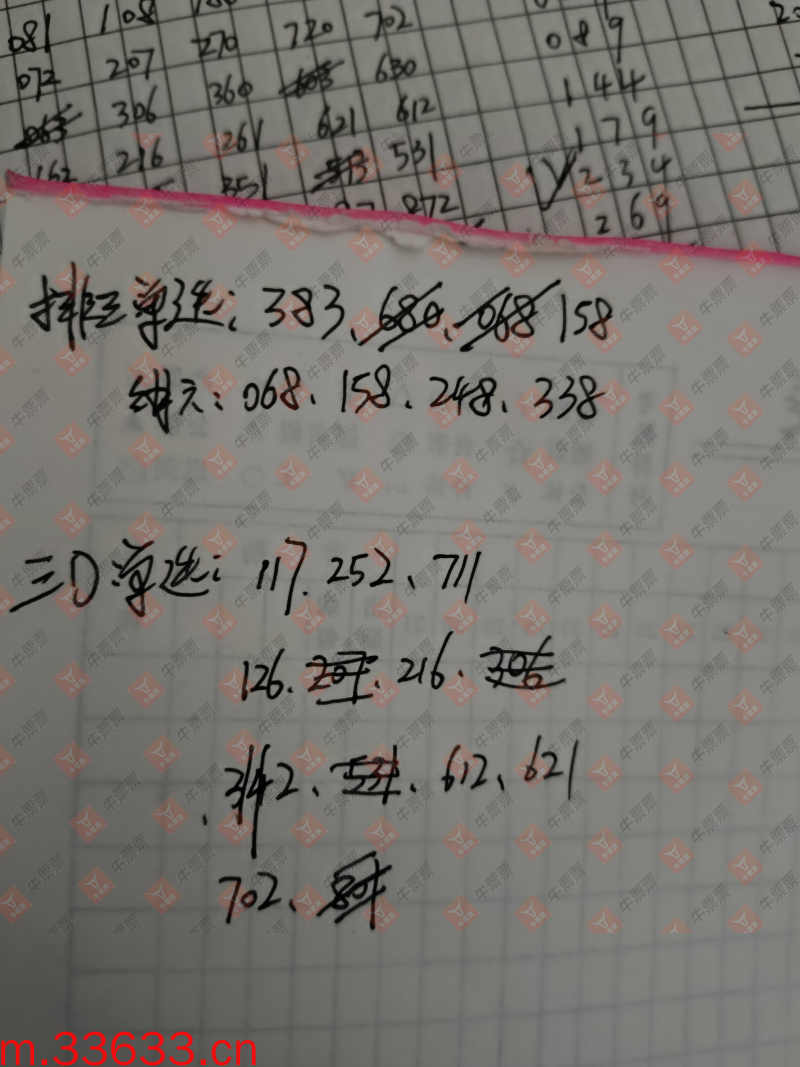 081 108 720 702
072 207 270 089
306 360 630 144
216 261 621 612 179
162 351 531 234
872 269
排三单选：383、680、068 158
组六：068、158、248、338
三D单选：117、252、711
126、207、216、306
342、531、612、621
702、801
牛票票
m.33633.cn